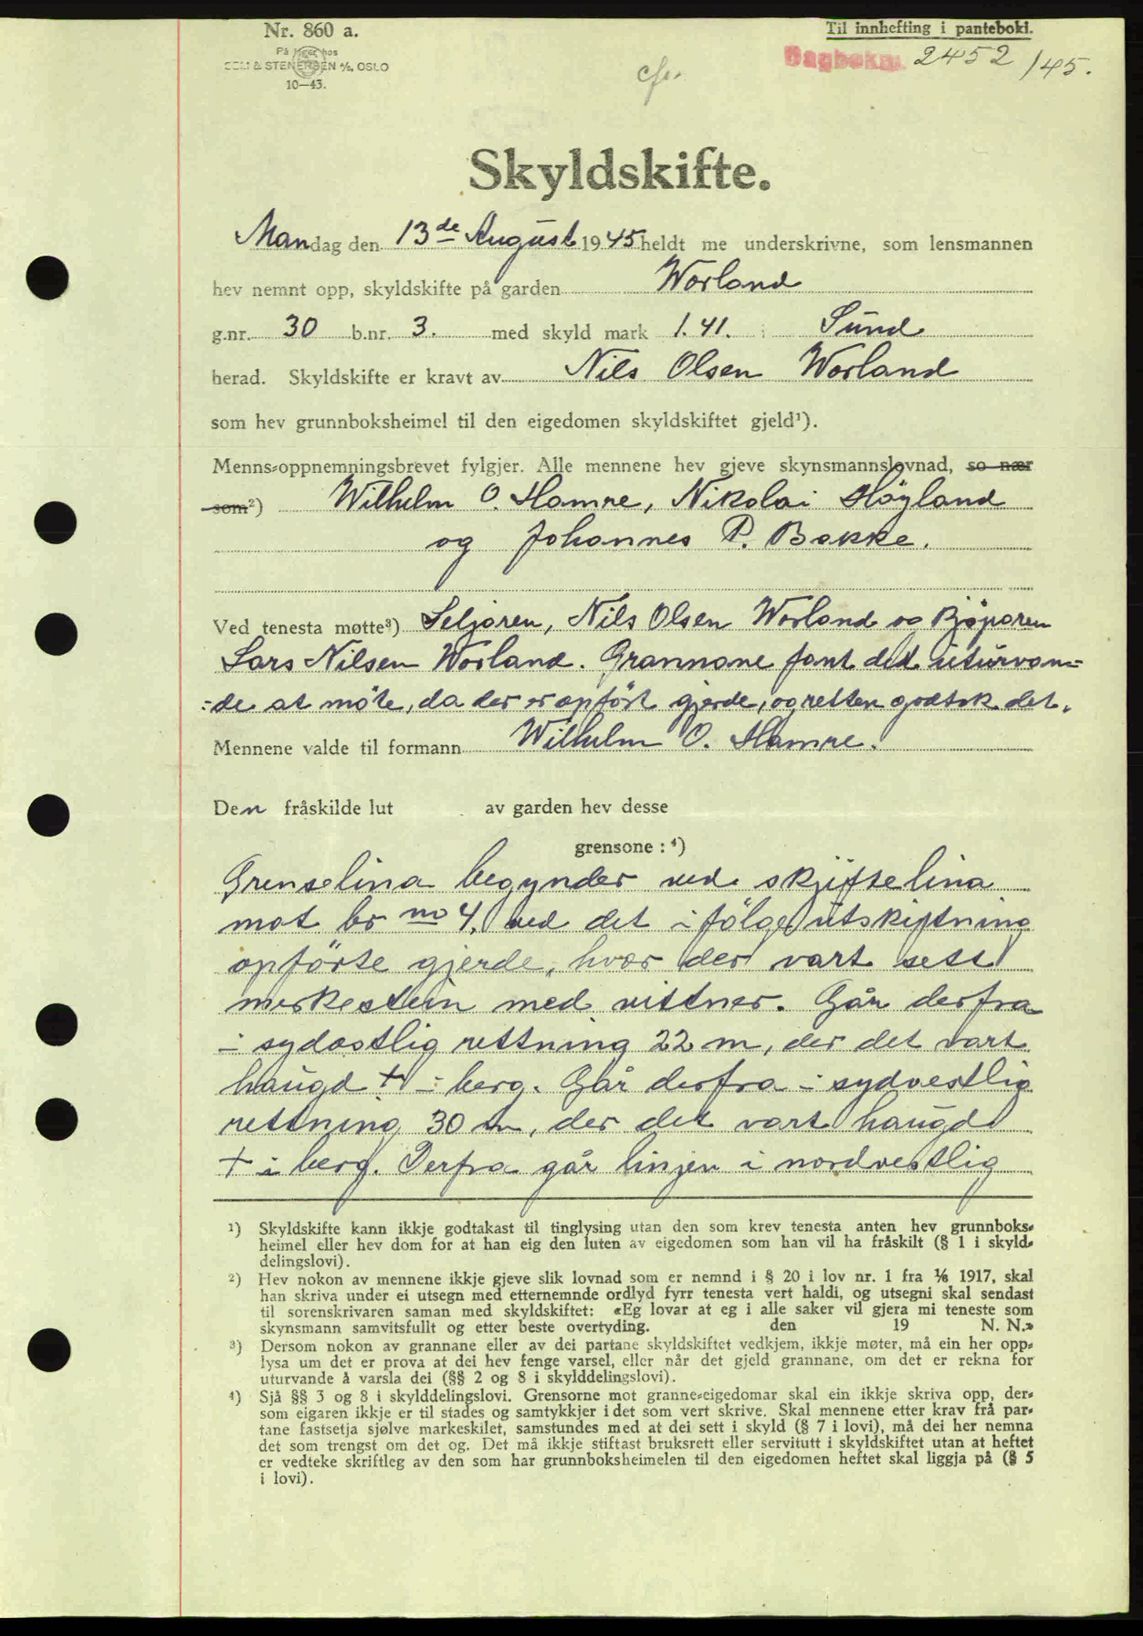 Nr. 860 a.
På lager hos
SEM & STENERSEN A/S, OSLO
10—43.
Til innhefting i panteboki.
Dagboknr. 2452/45.
Skyldskifte.
Mandag den 13de August 1945 heldt me underskrivne, som lensmannen
hev nemnt opp, skyldskifte på garden Worland
g.nr. 30 b.nr. 3. med skyld mark 1.41. i Sund
herad. Skyldskifte er kravt av Nils Olsen Worland
som hev grunnboksheimel til den eigedomen skyldskiftet gjeld¹).
Menns-oppnemningsbrevet fylgjer. Alle mennene hev gjeve skynsmannslovnad, so nær
som²) Wilhelm O. Hamre, Nikolai Höyland
og Johannes P. Bakke.
Ved tenesta møtte³) Seljaren, Nils Olsen Worland og Kjøparen
Lars Nilsen Worland. Grannane fant det uturvan=
=de at møte, da der er opført gjerde, og retten godtok det.
Mennene valde til formann Wilhelm O. Hamre.
Den fråskilde lut av garden hev desse
grensone : ⁴)
Grenselina begynder ved skjiftelina
mot br no 4, ved det i følge utskiftning
opførte gjerde, hvor der vart sett
merkestein med vittner. Går derfra
i sydostlig rettning 22 m, der det vart
haugd + i berg. Går derfra i sydvestlig
rettning 30 m, der det vart haugd
+ i berg. Derfra går linjen i nordvestlig
¹) Skyldskifte kann ikkje godtakast til tinglysing utan den som krev tenesta anten hev grunnboks-
heimel eller hev dom for at han eig den luten av eigedomen som han vil ha fråskilt (§ 1 i skyld-
delingslovi).
²) Hev nokon av mennene ikkje gjeve slik lovnad som er nemnd i § 20 i lov nr. 1 fra 1/6 1917, skal
han skriva under ei utsegn med etternemnde ordlyd fyrr tenesta vert haldi, og utsegni skal sendast
til sorenskrivaren saman med skyldskiftet: «Eg lovar at eg i alle saker vil gjera mi teneste som
skynsmann samvitsfullt og etter beste overtyding. den 19 N. N.»
³) Dersom nokon av grannane eller av dei partane skyldskiftet vedkjem, ikkje møter, må ein her opp-
lysa um det er prova at dei hev fenge varsel, eller når det gjeld grannane, om det er rekna for
uturvande å varsla dei (§§ 2 og 8 i skylddelingslovi).
⁴) Sjå §§ 3 og 8 i skylddelingslovi. Grensorne mot granne-eigedomar skal ein ikkje skriva opp, der-
som eigaren ikkje er til stades og samtykkjer i det som vert skrive. Skal mennene etter krav frå par-
tane fastsetja sjølve markeskilet, samstundes med at dei sett i skyld (§ 7 i lovi), må dei her nemna
det som trengst om det og. Det må ikkje stiftast bruksrett eller servitutt i skyldskiftet utan at heftet
er vedteke skriftleg av den som har grunnboksheimelen til den eigedomen heftet skal liggja på (§ 5
i lovi).